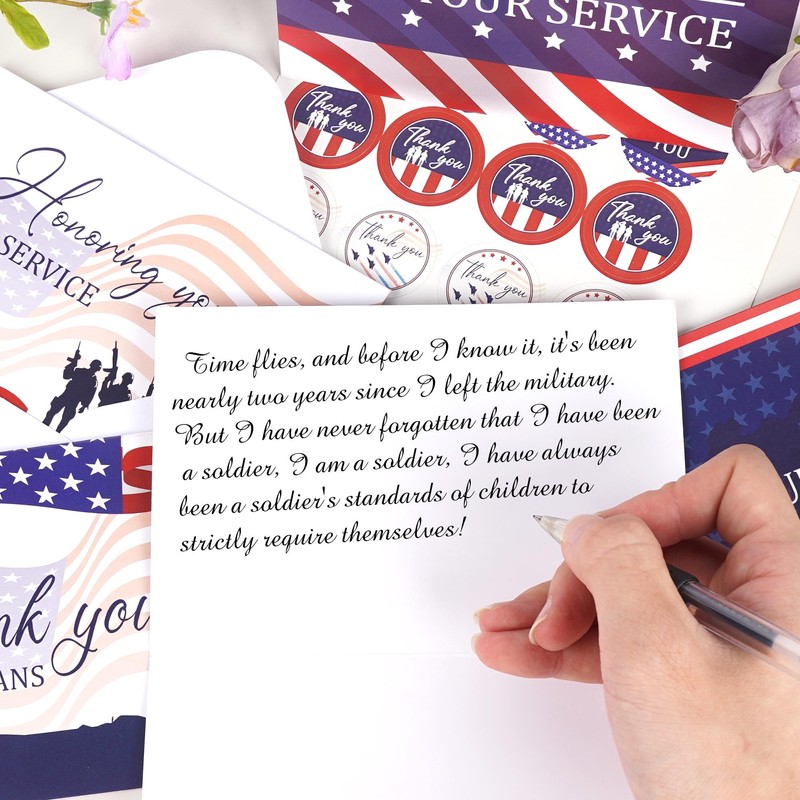 YOUR SERVICE
Thank you
Thank you
Thank you
Thank you
YOU
Thank you
Thank you
Honoring
SERVICE
Time flies, and before I know it, it's been
nearly two years since I left the military.
But I have never forgotten that I have been
a soldier, I am a soldier, I have always
been a soldier's standards of children to
strictly require themselves!
you